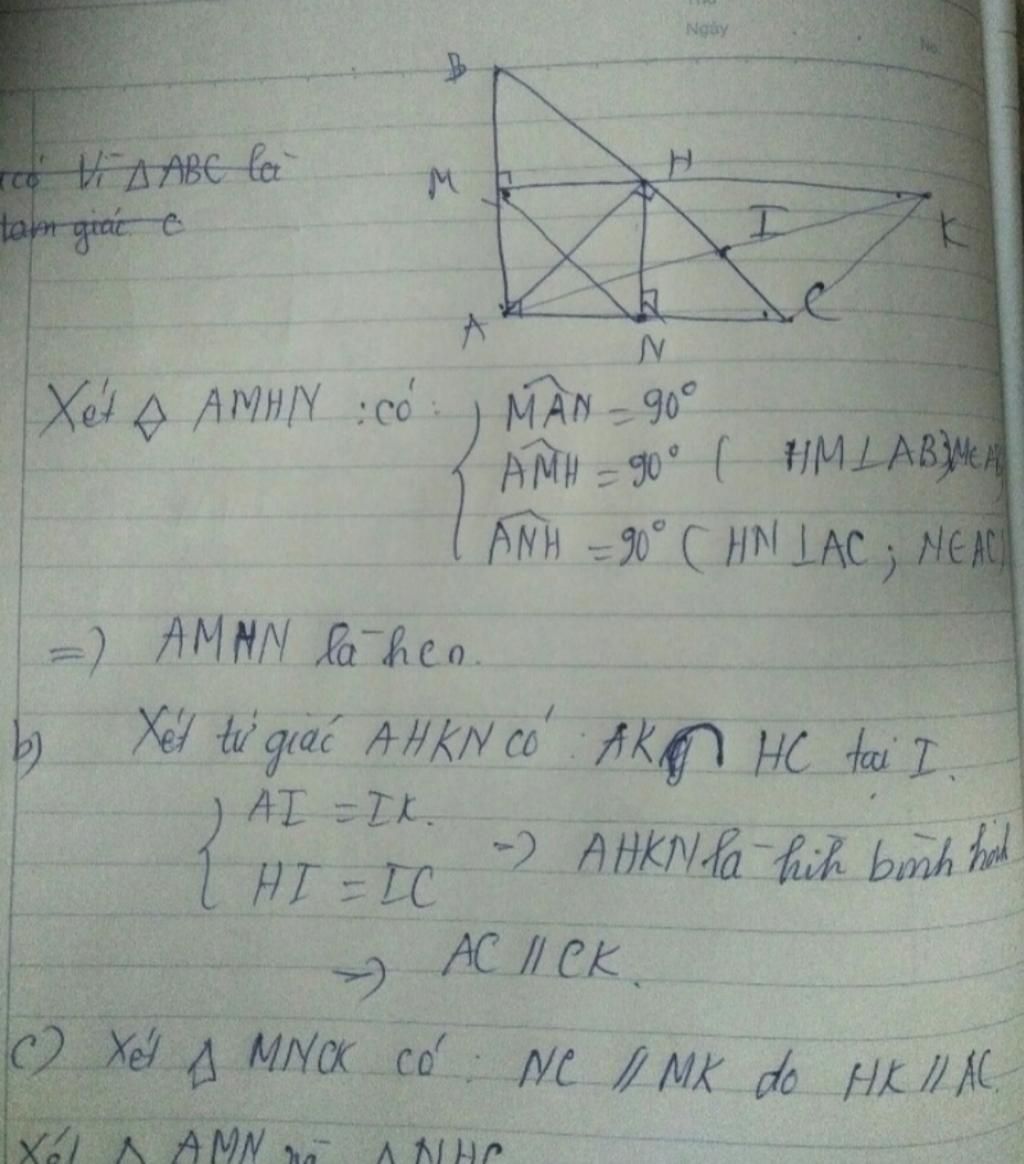 Thứ
Ngày
No.
B
có Vì △ ABC là
tam giác C
M
H
I
K
A
N
C
Xét ◇ AMHN : có :
MAN = 90°
AMH = 90° ( HM ⊥ AB; M∈AB
ANH = 90° ( HN ⊥ AC ; N∈AC)
=> AMHN là hcn.
b) Xét tứ giác AHKN có : AK ∩ HC tại I.
AI = IK.
HI = IC
=> AHKN là hih bình hàh
=> AC // CK.
c) Xét ◇ MNCK có : NC // MK do HK // AC.
Xét △ AMN và △ NHC